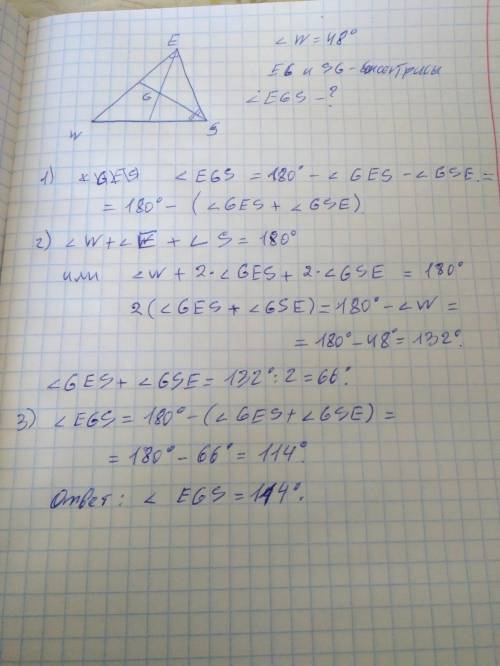 E
G
W
S
∠W=48°
EG и SG - биссектрисы
∠EGS - ?
1) ∠EGS = 180° - ∠GES - ∠GSE =
= 180° - (∠GES + ∠GSE)
2) ∠W + ∠E + ∠S = 180°
или ∠W + 2·∠GES + 2·∠GSE = 180°
2(∠GES + ∠GSE) = 180° - ∠W =
= 180° - 48° = 132°.
∠GES + ∠GSE = 132° : 2 = 66°.
3) ∠EGS = 180° - (∠GES + ∠GSE) =
= 180° - 66° = 114°.
Ответ: ∠ EGS = 114°.